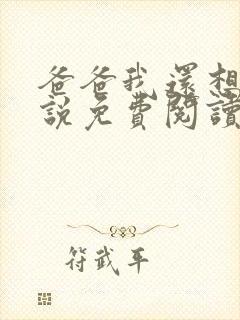 爸爸我還想
說免費閱讀
符武平